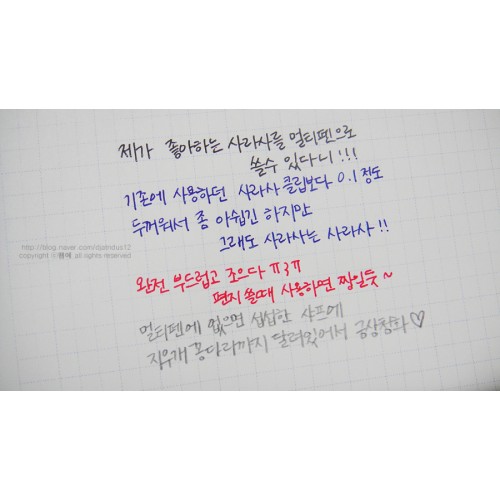 제가 좋아하는 사라사를 멀티펜으로
쓸수 있다니!!!
기존에 사용하던 사라사 클립보다 0.1 정도
두꺼워서 좀 아쉽긴 하지만
그래도 사라사는 사라사!!
완전 부드럽고 조으다 ㅠ3ㅠ
편지 쓸때 사용하면 짱일듯~
멀티펜에 없으면 섭섭한 샤프에
지우개 꽁다리까지 달려있어서 금상첨화♡
http://blog.naver.com/djalndus12
copyright ⓒ all rights reserved